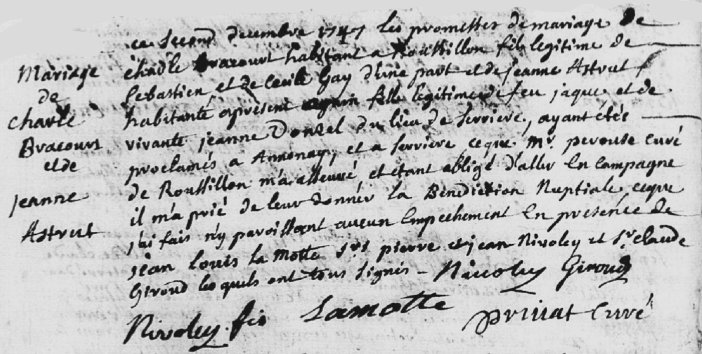 Mariage
de
Charle
Bracourt
et de
jeanne
Astrut
ce second decembre 1747 les promesses de mariage de
charle Bracourt habitant a Roussillon fils legitime de
Sebastien et de Cecile Gay d'une part et de jeanne Astrut
habitante a present fille legitime de feu jaque et de
vivante jeanne Donzel du lieu de Serriere, ayant étés
proclamés a Annonay, et a Serriere ce que Mr. perouse curé
de Roussillon m'a asseuré et etant obligé d'aller en campagne
il m'a prié de leur donner la Benediction Nuptiale, ce que
j'ai fais n'y paroissant aucun Empechement En presence de
jean louis la Motte Srs pierre et jean Nivoley et Sr claude
Giroud lesquels ont tous signés - Nivoley Giroud
Nivoley fis Lamotte privat curé